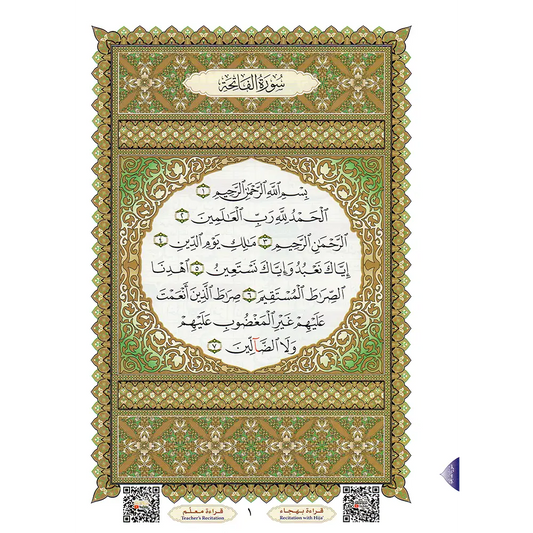 سُورَةُ الْفَاتِحَةِ
بِسْمِ اللَّهِ الرَّحْمَٰنِ الرَّحِيمِ ١
الْحَمْدُ لِلَّهِ رَبِّ الْعَالَمِينَ ٢
الرَّحْمَٰنِ الرَّحِيمِ ٣ مَالِكِ يَوْمِ الدِّينِ ٤
إِيَّاكَ نَعْبُدُ وَإِيَّاكَ نَسْتَعِينُ ٥ اهْدِنَا
الصِّرَاطَ الْمُسْتَقِيمَ ٦ صِرَاطَ الَّذِينَ أَنْعَمْتَ
عَلَيْهِمْ غَيْرِ الْمَغْضُوبِ عَلَيْهِمْ
وَلَا الضَّالِّينَ ٧
قراءة بهجاء
Recitation with Hija'
١
قراءة معلم
Teacher's Recitation